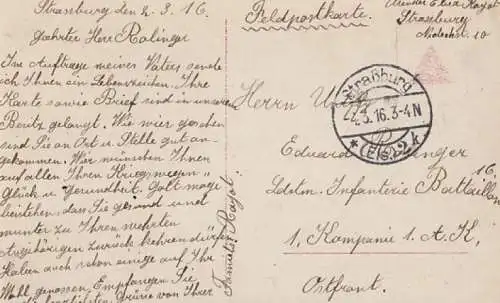 Strassburg den 2.3.16.
Geehrter Herr Ralinger
Im Auftrage meines Vaters sende
ich Ihnen ein Lebenszeichen. Ihre
Karte sowie Brief sind in unsern
Besitz gelangt. Wie wir gesehen
sind Sie an Ort u Stelle gut an-
gekommen. Wir wünschen Ihnen
auf allen Ihren
Glück u Gesundheit. Gott möge
Sie gesund und
munter zu Ihren
Angehörigen zurück kehren dürfen.
Haben auch schon einige auf Ihr
Wohl genossen. Empfangen Sie
Grüße von Ihrer
Familie Rayot
Feldpostkarte.
Rayot
Strassburg
10
Straßburg
2.3.16.3-4N
* (Els.) 2 k
Herrn
Eduard
Ldstm. Infanterie Bataillon
16.
1. Kompanie 1. A. K,
Ostfront.